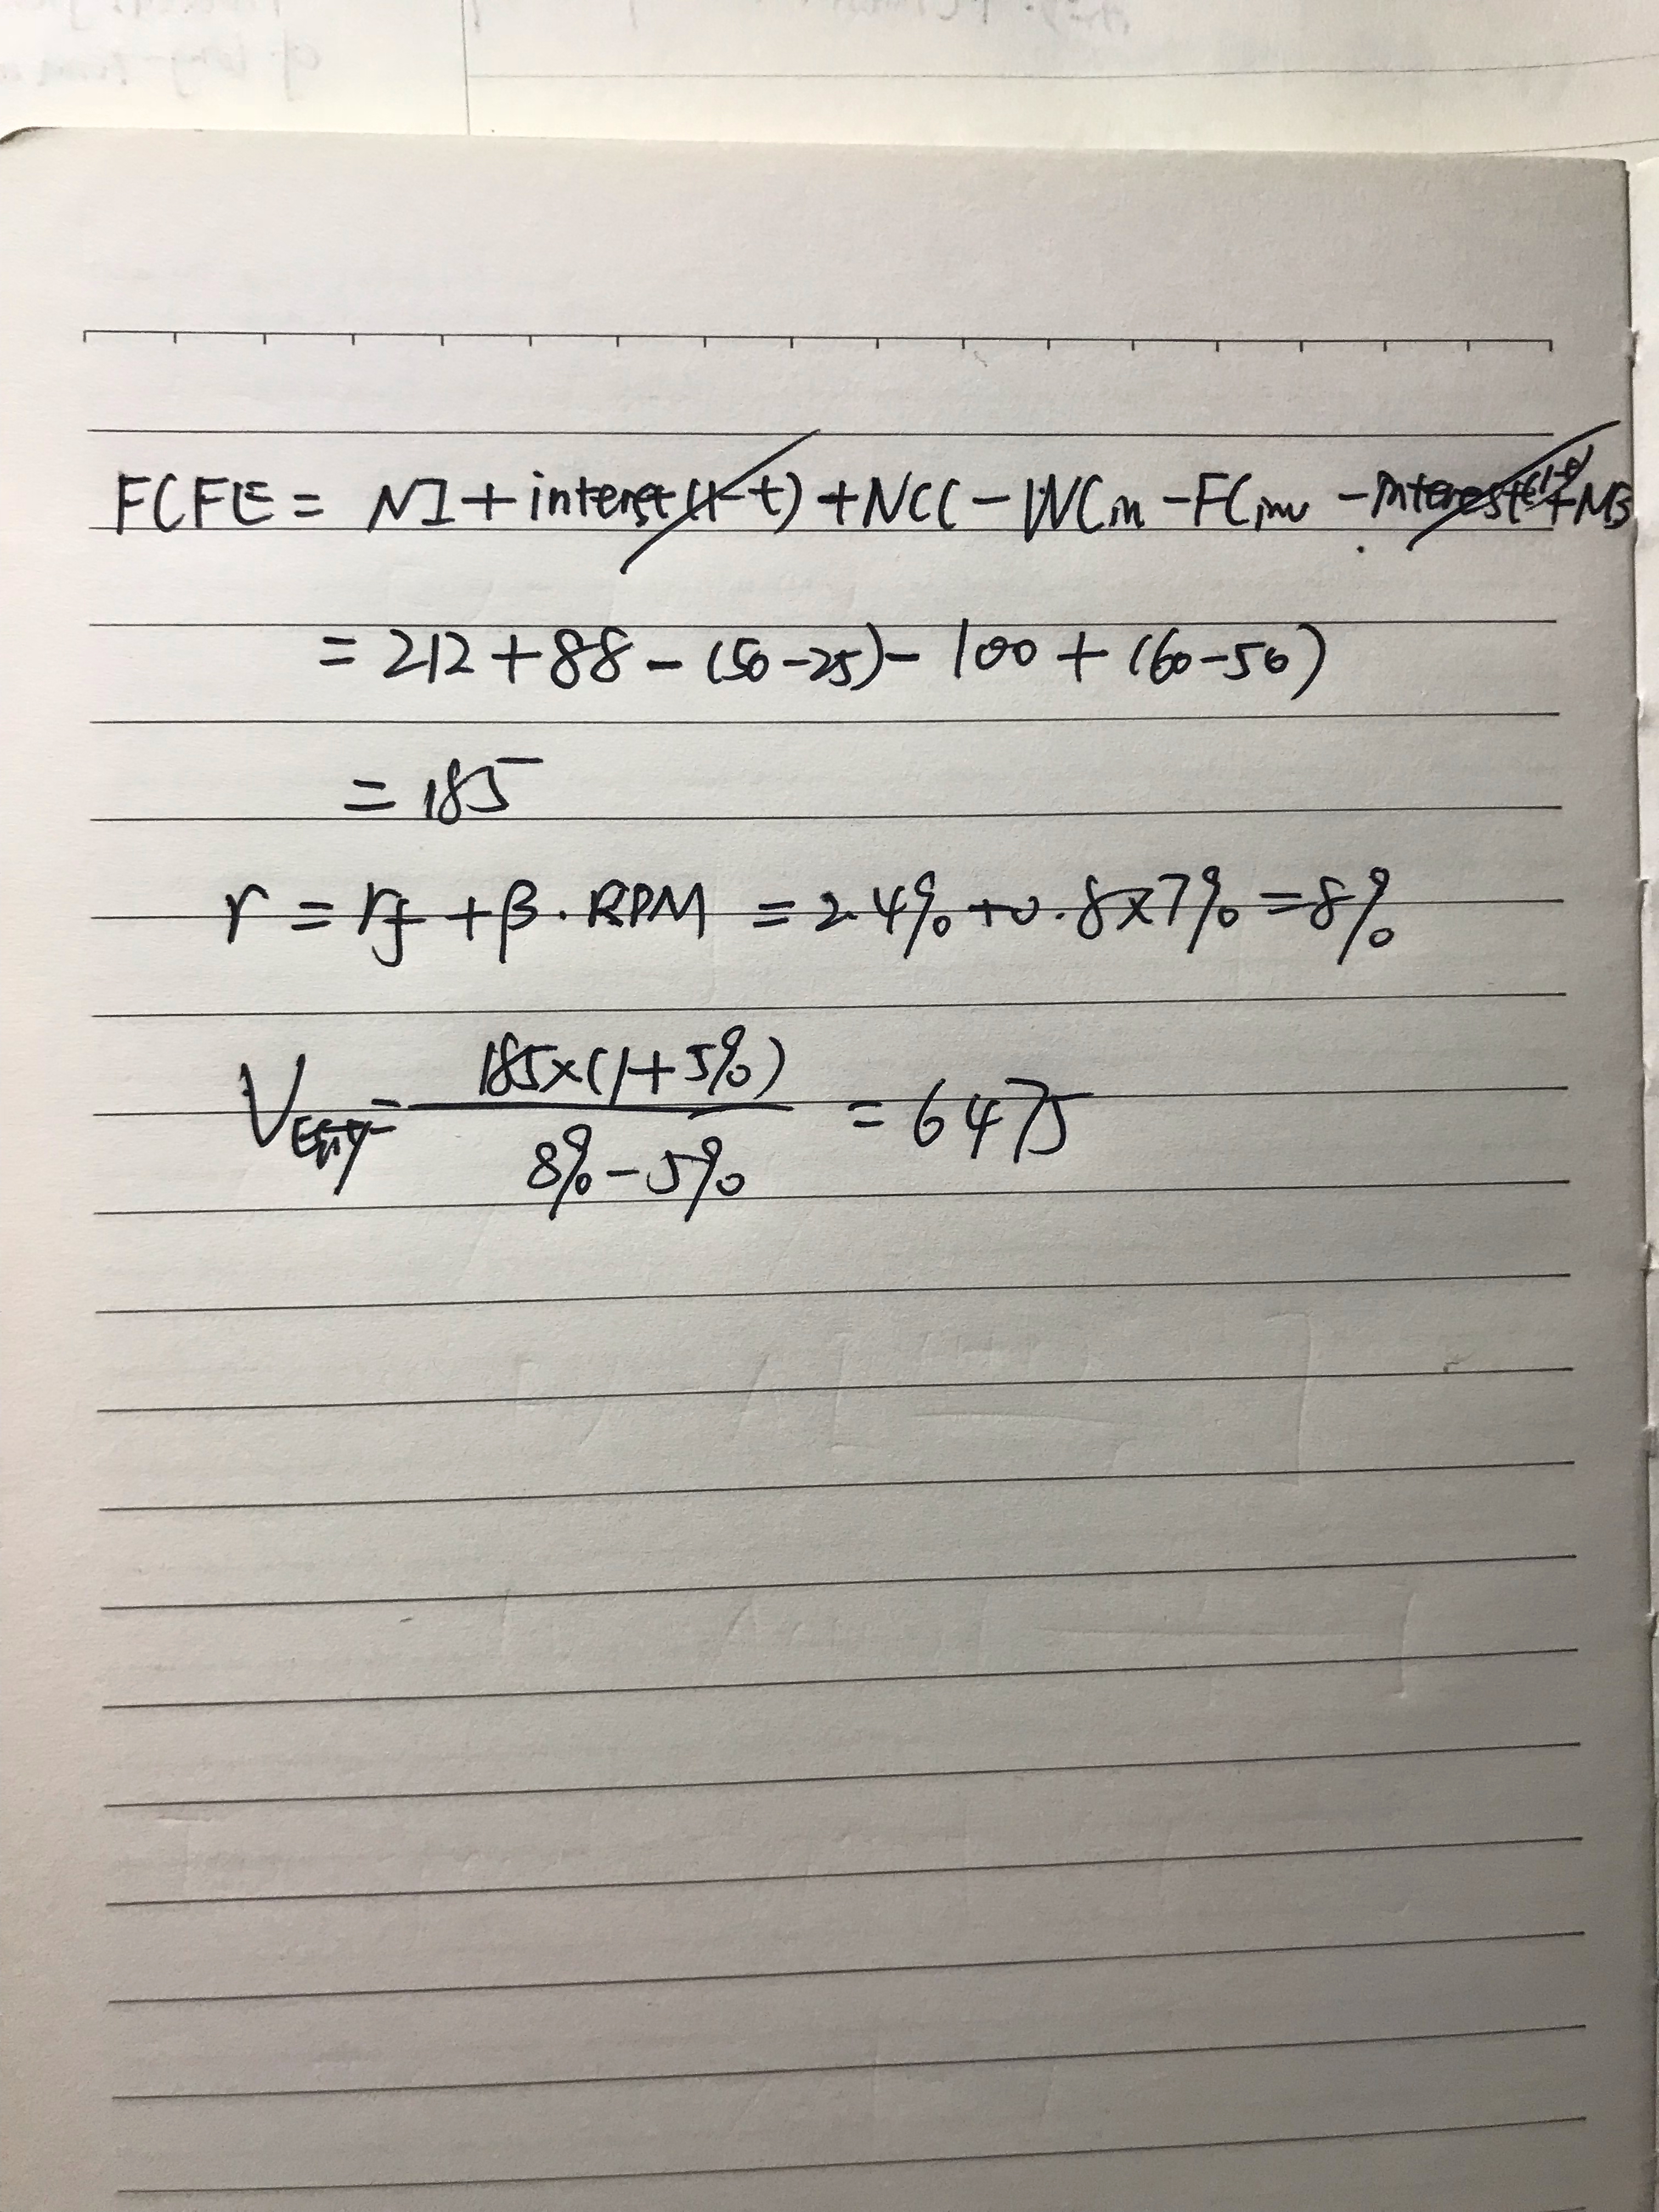 FCFE = NI + interest (1-t) + NCC - WCin - FCinv - interest(1-t) + NB
= 212 + 88 - (50-25) - 100 + (60-50)
= 185
r = rf + β · RPM = 2.4% + 0.8×7% = 8%
V = 185×(1+5%) / 8%-5% = 6475